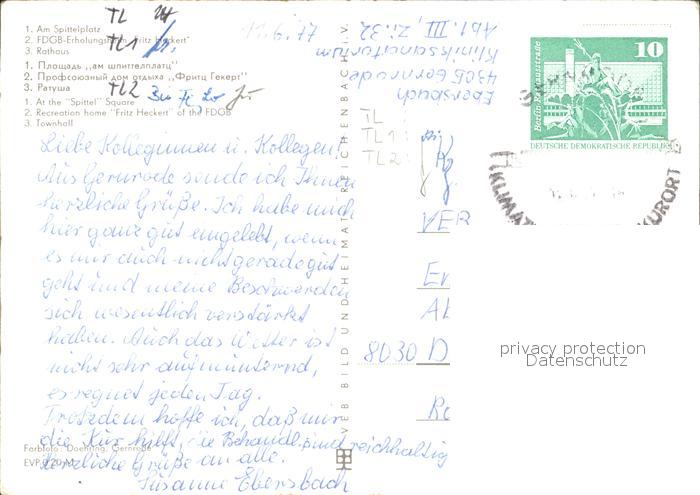 1. Am Spittelplatz
2. FDGB-Erholungsheim "Fritz Heckert"
3. Rathaus
1. Площадь „ам шпиттелплатц"
2. Профсоюзный дом отдыха „Фритц Гекерт"
3. Ратуша
1. At the "Spittel" Square
2. Recreation home "Fritz Heckert" of the FDGB
3. Townhall
TL
TL1
TL2
11.6.77
Ebersbach
4305 Gernrode
Kliniksanatorium
Abt. III, Zi. 32
TL
TL1
TL2
Liebe Kolleginnen u. Kollegen!
Aus Gernrode sende ich Ihnen
herzliche Grüße. Ich habe mich
hier ganz gut eingelebt, wenn
es mir auch nicht gerade gut
geht und meine Beschwerden
sich wesentlich verstärkt
haben. Auch das Wetter ist
nicht sehr aufmunternd,
es regnet jeden Tag.
Trotzdem hoffe ich, daß mir
die Kur hilft, die Behandl. sind reichhaltig
Herzliche Grüße an alle.
Susanne Ebersbach
Farbfoto: Doehring, Gernrode
VEB BILD UND HEIMAT REICHENBACH i. V.
Berlin Rathausstraße
10
DEUTSCHE DEMOKRATISCHE REPUBLIK
KLIMAT
KURORT
VEB
8030 D
privacy protection
Datenschutz